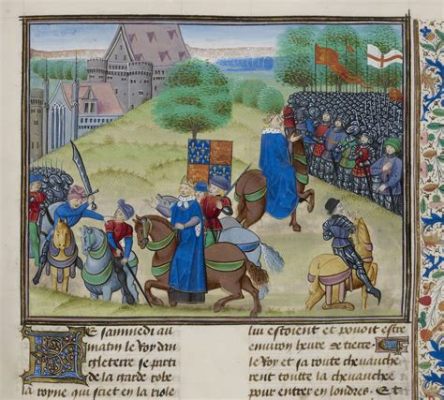 LE samnedi au
matin le Roy dan
gleterre se parti
de la garde robe
la royne qui siet en la riole
lui estoient et pouoit estre
environ heure de tierce.
le Roy et sa route chevauche
rent toutte la chevauchee
pour entrer en londres. Et